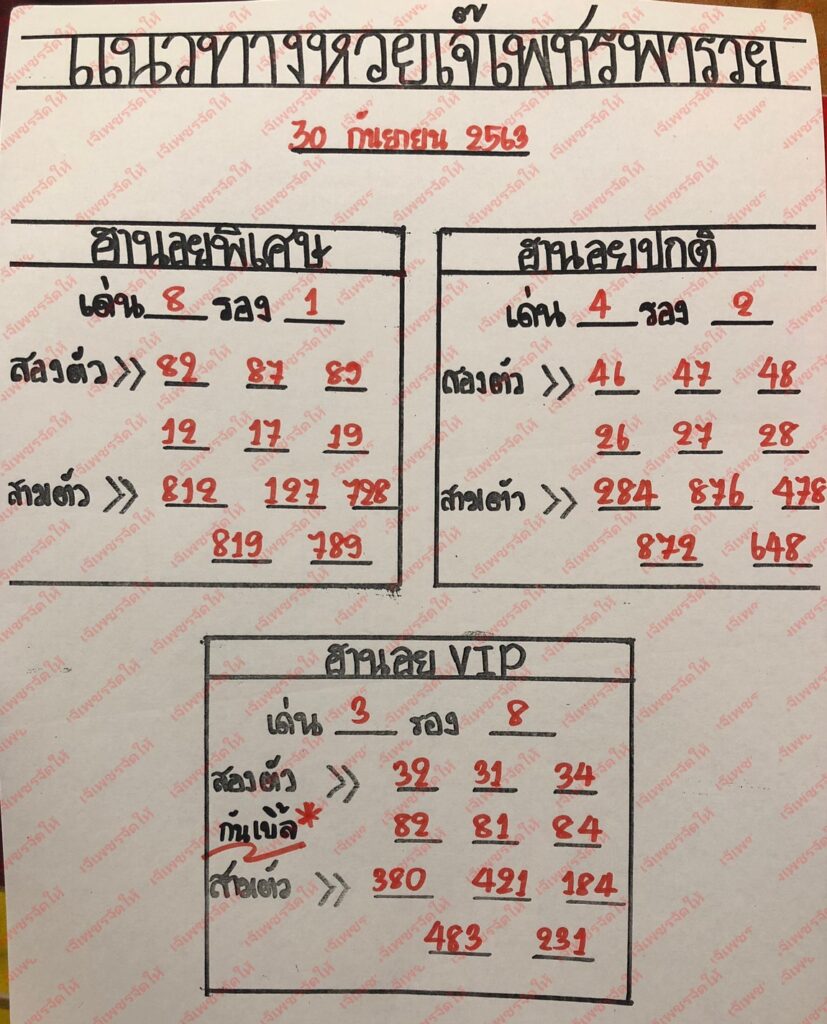 แนวทางหวยเจ๊เพชรพารวย
30 กันยายน 2563
ฮานอยพิเศษ
เด่น 8 รอง 1
สองตัว >> 82 87 89
12 17 19
สามตัว >> 812 127 728
819 789
ฮานอยปกติ
เด่น 4 รอง 2
สองตัว >> 46 47 48
26 27 28
สามตัว >> 284 876 478
872 648
ฮานอย VIP
เด่น 3 รอง 8
สองตัว >> 32 31 34
กันเบิ้ล* 82 81 84
สามตัว >> 380 421 184
483 231
เจ๊เพชรจัดให้